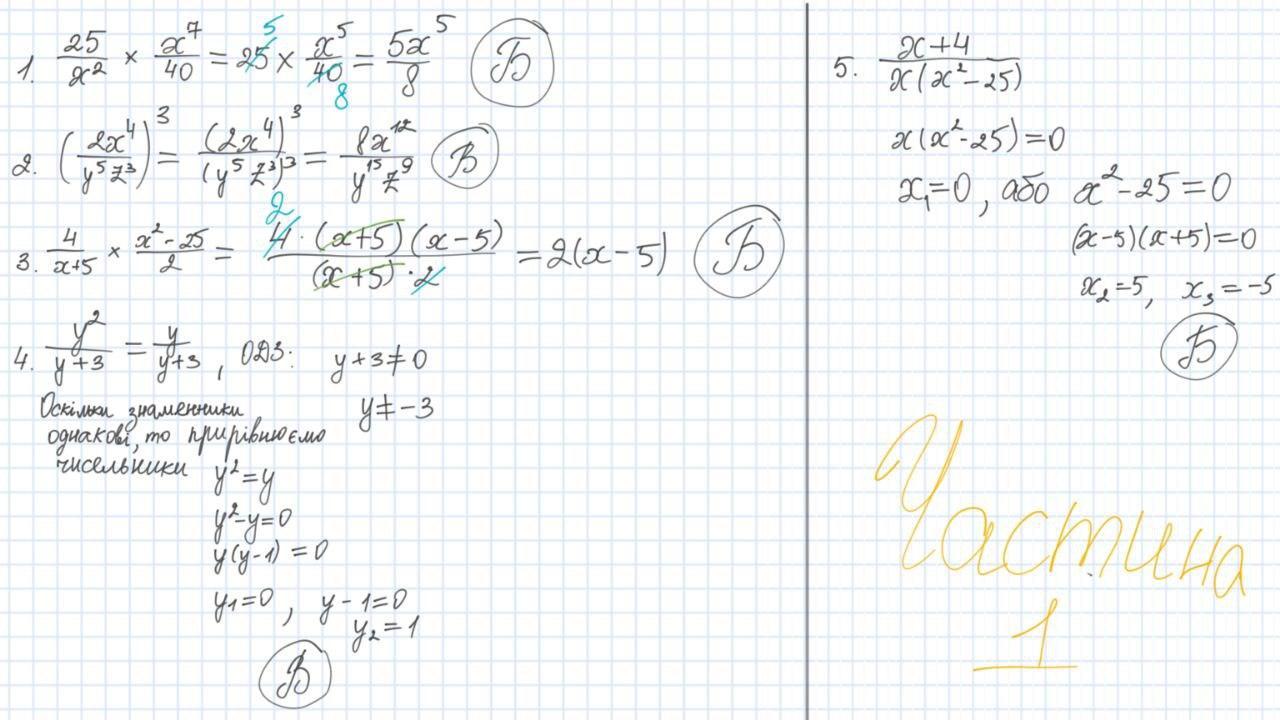 1. 25/x² × x⁷/40 = 25 5 × x⁵/40 8 = 5x⁵/8 Б
2. (2x⁴/y⁵z³)³ = (2x⁴)³/(y⁵z³)³ = 8x¹²/y¹⁵z⁹ В
3. 4/x+5 × x²-25/2 = 4 2 · (x+5)(x-5)/(x+5) · 2 = 2(x-5) Б
4. y²/y+3 = y/y+3 , ОДЗ: y+3≠0
Оскільки знаменники y≠-3
однакові, то прирівнюємо
чисельники y²=y
y²-y=0
y(y-1)=0
y1=0 , y-1=0
y₂=1
В
5. x+4/x(x²-25)
x(x²-25)=0
x₁=0 , або x²-25=0
(x-5)(x+5)=0
x₂=5, x₃=-5
Б
Частина
1